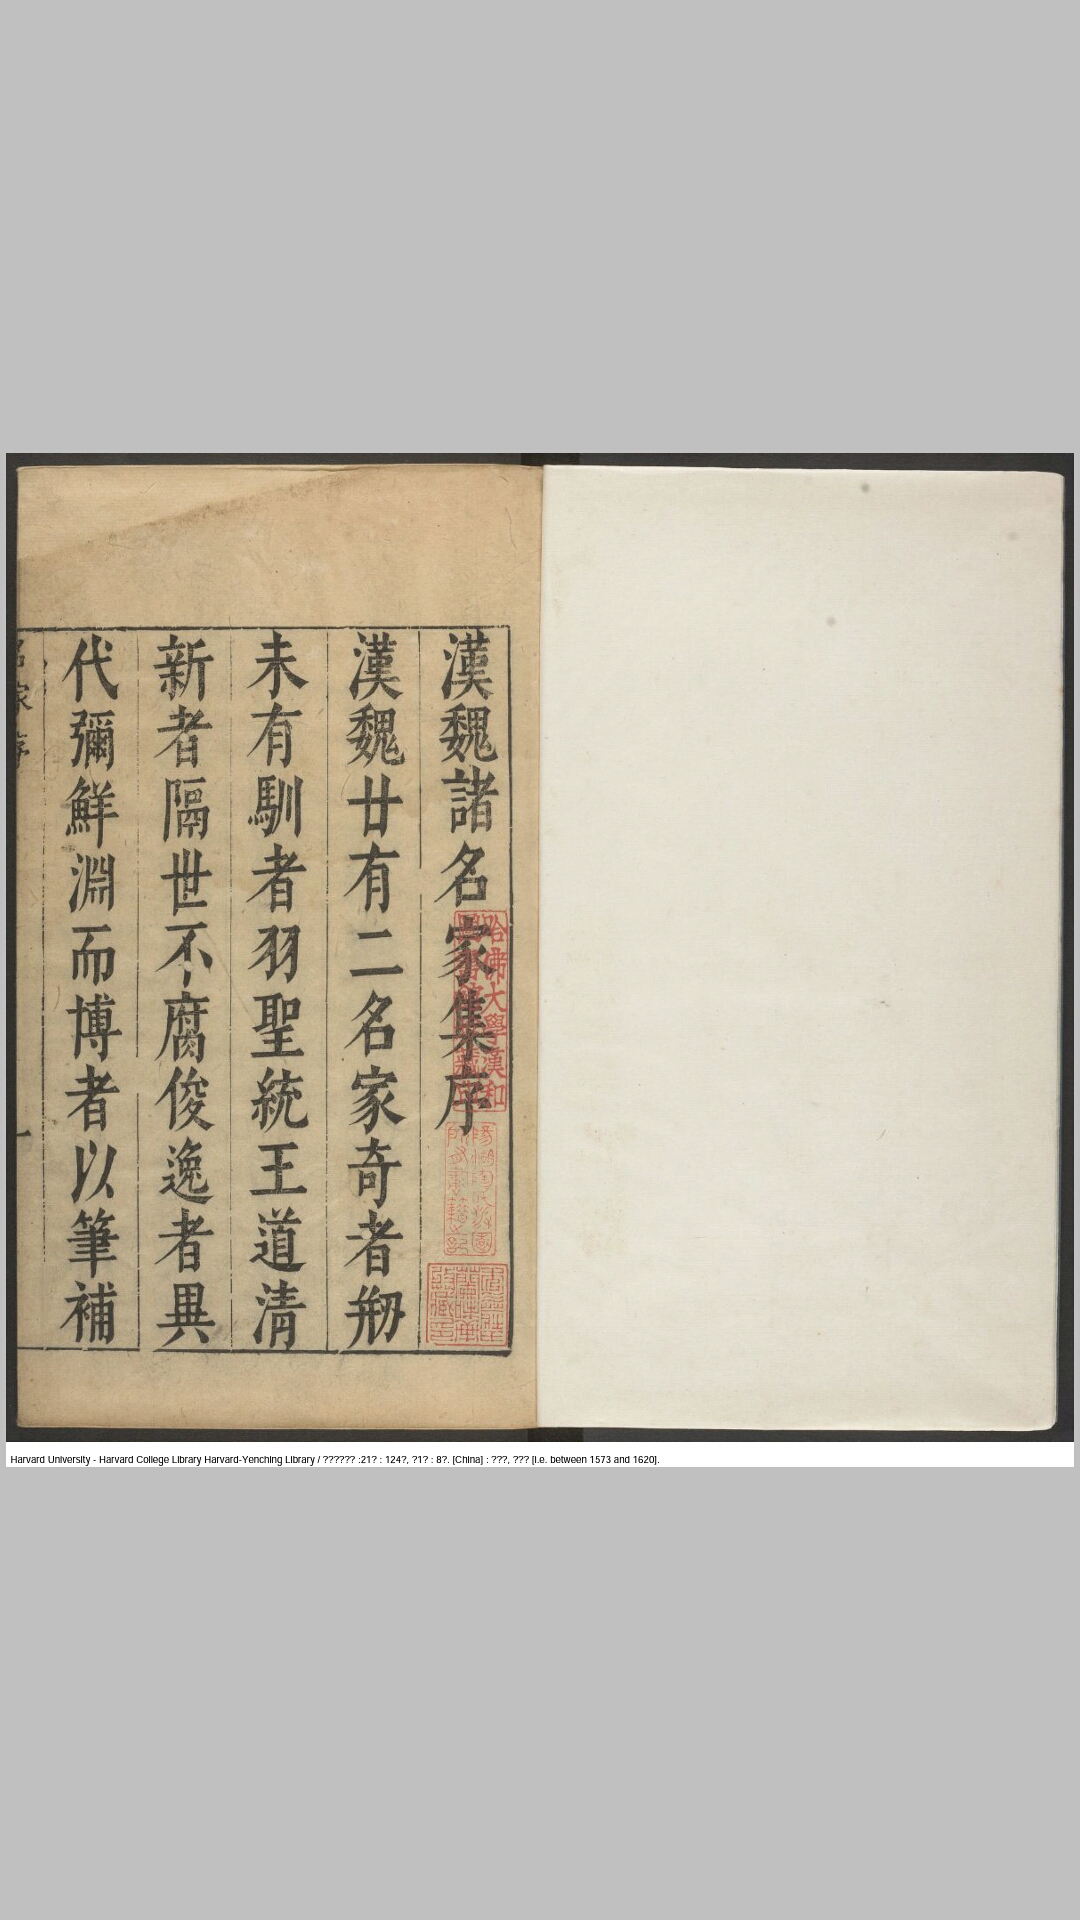 漢魏諸名家集序
漢魏廿有二名家奇者剏
未有馴者羽聖統王道清
新者隔世不腐俊逸者異
代彌鮮淵而博者以筆補
哈佛大學漢和
Harvard University - Harvard College Library Harvard-Yenching Library / ?????? :21? : 124?, ?1? : 8?. [China] : ???, ??? [i.e. between 1573 and 1620].